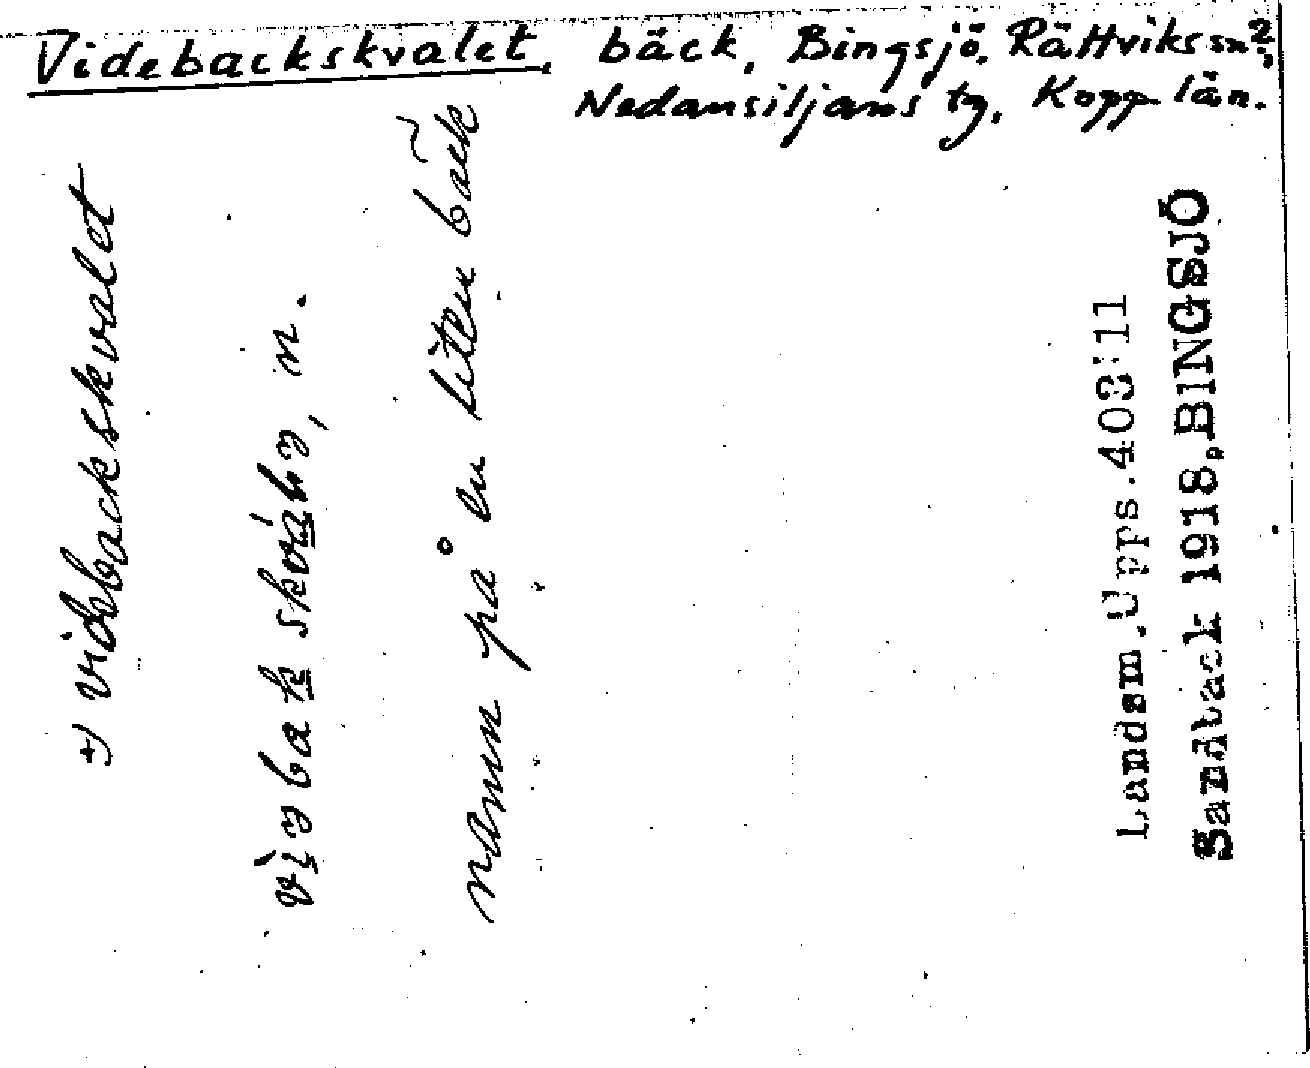 Videbackskvalet, bäck, Bingsjö, Rättviks sn?,
Nedansiljans tg, Kopp. län.
+) videbackskvalet
namn på en liten bäck
Landsm. Upps. 403:11
Sandback 1918, BINGSJÖ